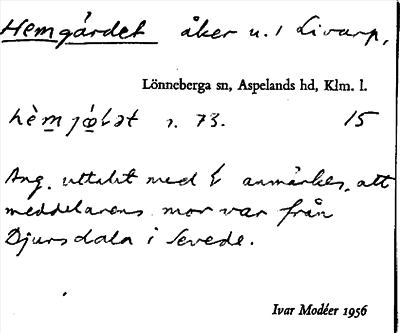 Hemgärdet åker u. 1 Livarp,
Lönneberga sn, Aspelands hd, Klm. l.
hèm jǽɽət s. 73. 15
Ang. uttalet med ɽ anmärkes, att
meddelarens mor var från
Djursdala i Sevede.
Ivar Modéer 1956